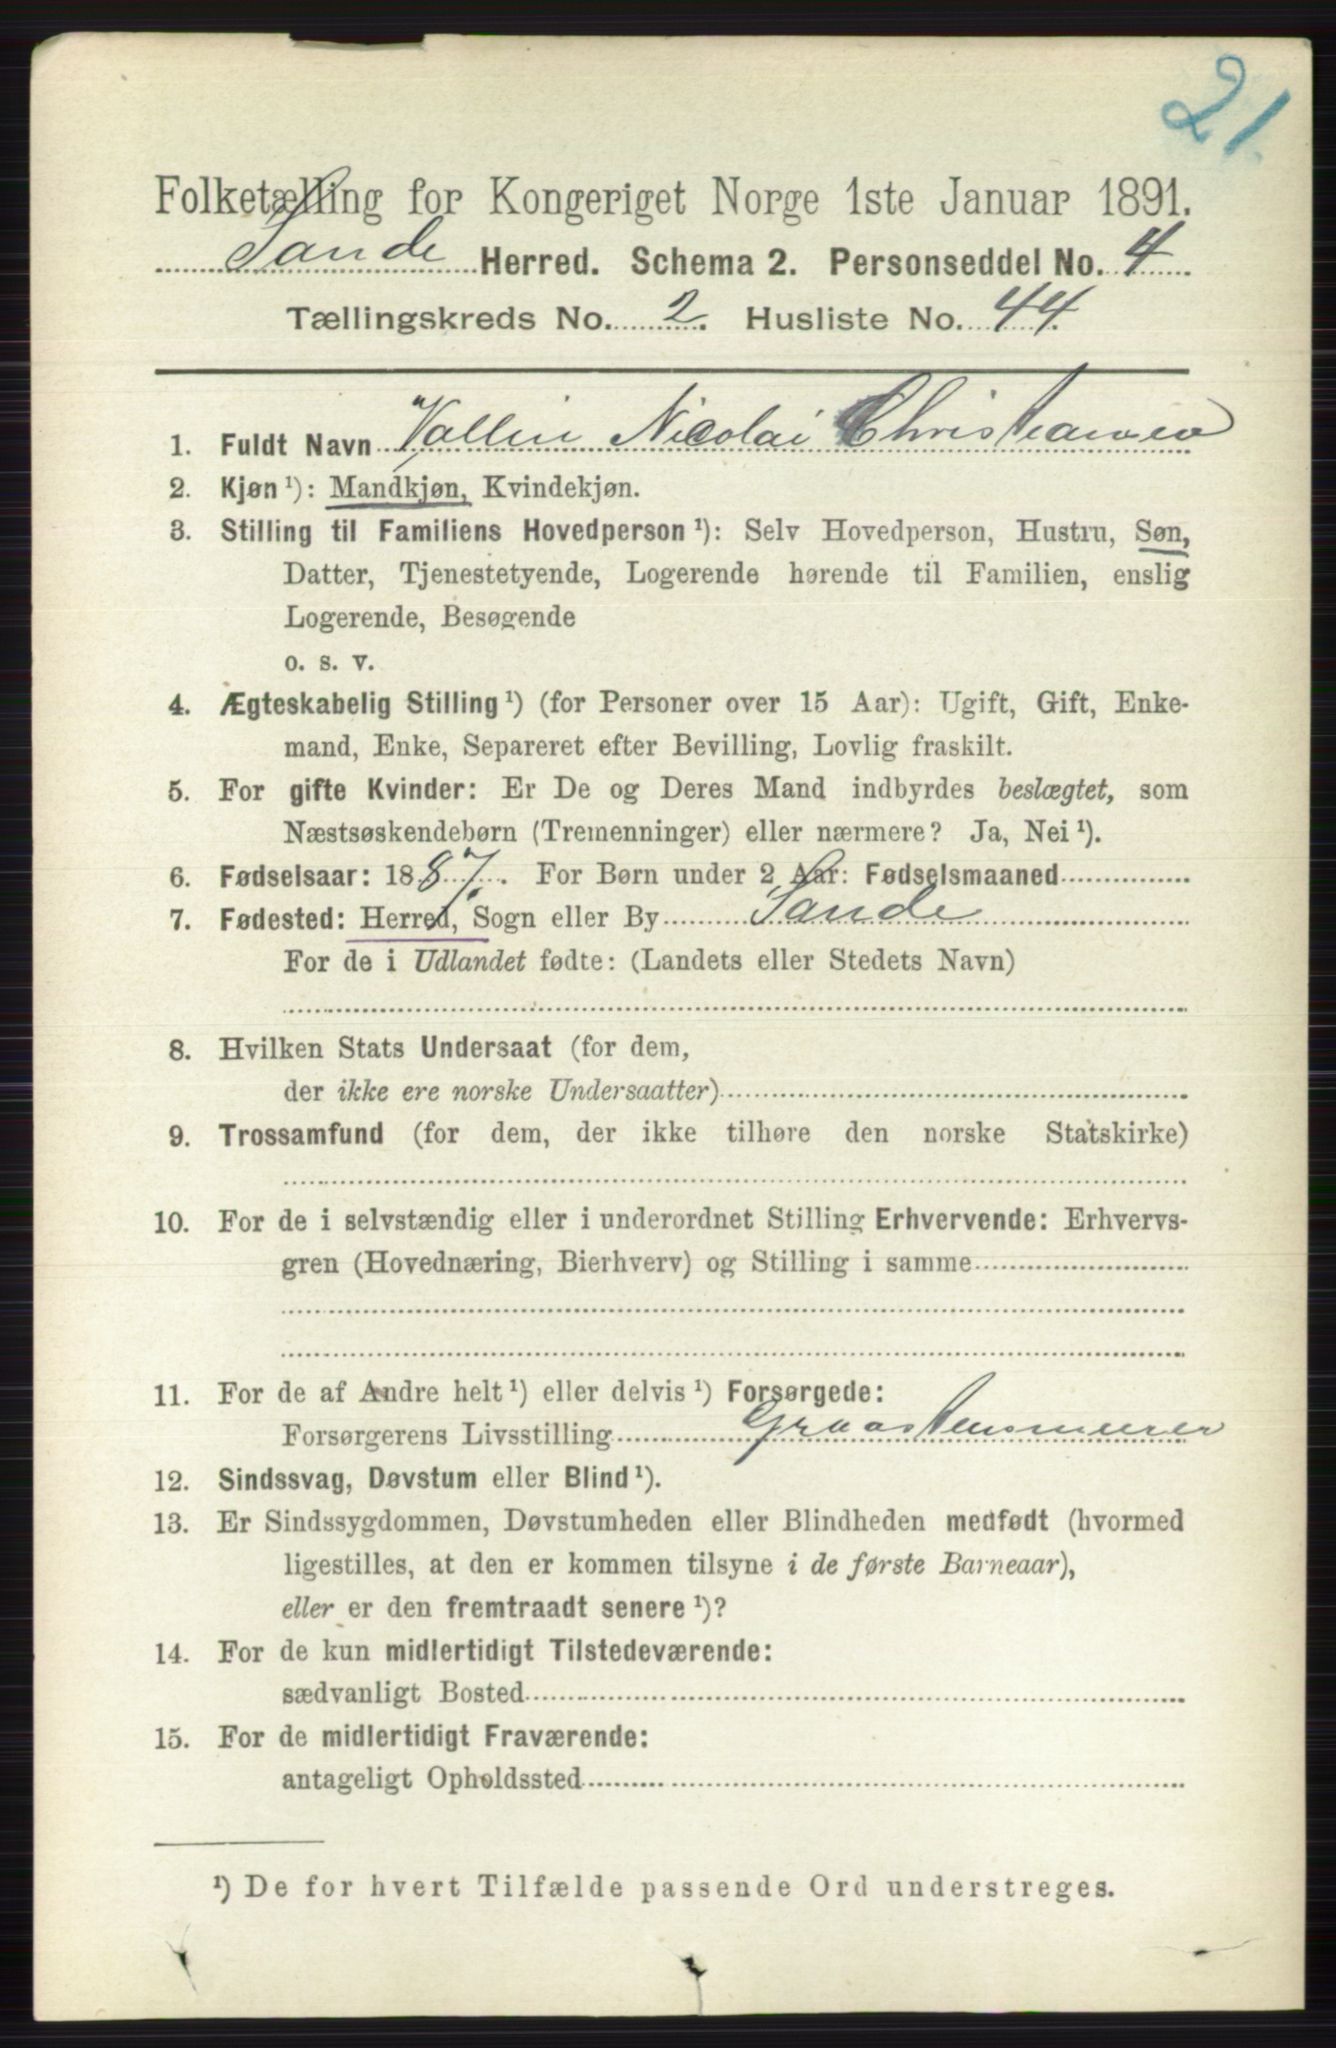 21
Folketælling for Kongeriget Norge 1ste Januar 1891.
Sande Herred. Schema 2. Personseddel No. 4
Tællingskreds No. 2. Husliste No. 44.
1. Fuldt Navn Nicolai Christiansen
2. Kjøn ¹): Mandkjøn, Kvindekjøn.
3. Stilling til Familiens Hovedperson ¹): Selv Hovedperson, Hustru, Søn,
Datter, Tjenestetyende, Logerende hørende til Familien, enslig
Logerende, Besøgende
o. s. v.
4. Ægteskabelig Stilling ¹) (for Personer over 15 Aar): Ugift, Gift, Enke-
mand, Enke, Separeret efter Bevilling, Lovlig fraskilt.
5. For gifte Kvinder: Er De og Deres Mand indbyrdes beslægtet, som
Næstsøskendebørn (Tremenninger) eller nærmere? Ja, Nei ¹).
6. Fødselsaar: 1887. For Børn under 2 Aar: Fødselsmaaned
7. Fødested: Herred, Sogn eller By Sande
For de i Udlandet fødte: (Landets eller Stedets Navn)
8. Hvilken Stats Undersaat (for dem,
der ikke ere norske Undersaatter)
9. Trossamfund (for dem, der ikke tilhøre den norske Statskirke)
10. For de i selvstændig eller i underordnet Stilling Erhvervende: Erhvervs-
gren (Hovednæring, Bierhverv) og Stilling i samme
11. For de af Andre helt ¹) eller delvis ¹) Forsørgede:
Forsørgerens Livsstilling Graastensmurer
12. Sindssvag, Døvstum eller Blind ¹).
13. Er Sindssygdommen, Døvstumheden eller Blindheden medfødt (hvormed
ligestilles, at den er kommen tilsyne i de første Barneaar),
eller er den fremtraadt senere ¹)?
14. For de kun midlertidigt Tilstedeværende:
sædvanligt Bosted
15. For de midlertidigt Fraværende:
antageligt Opholdssted
¹) De for hvert Tilfælde passende Ord understreges.